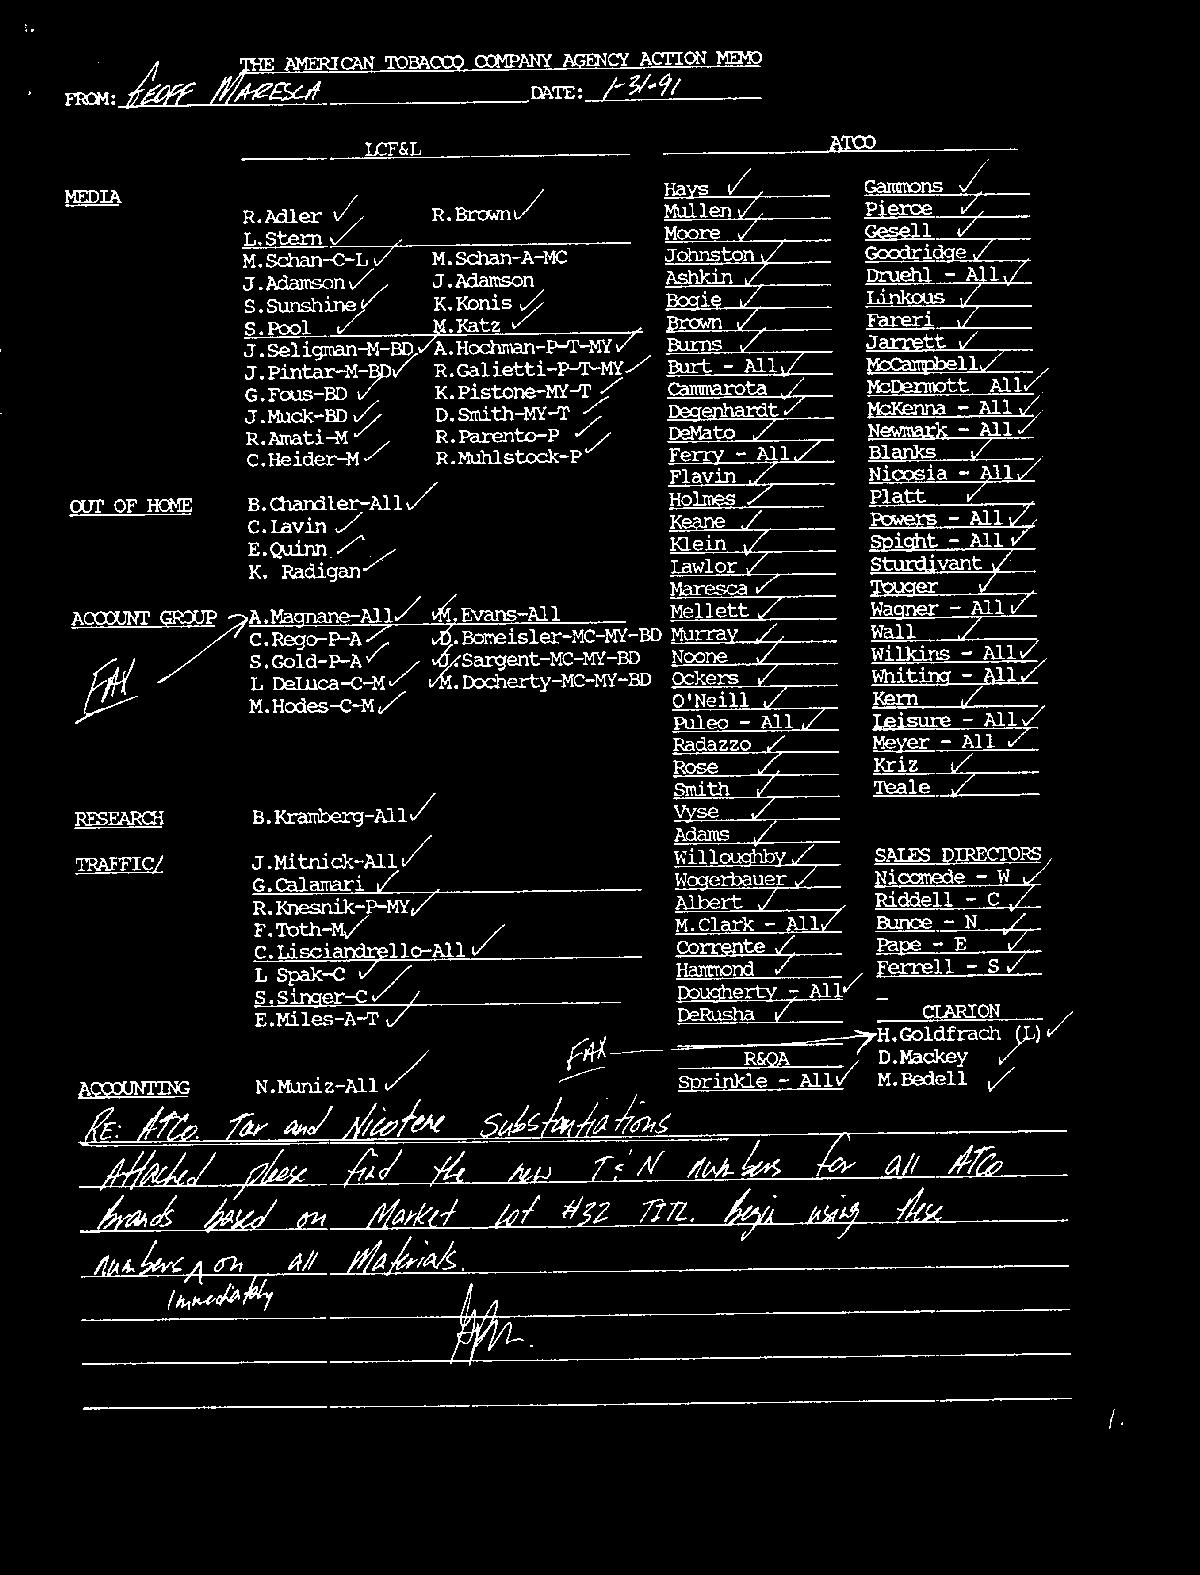 THE AMERICAN TOBACCO COMPANY AGENCY ACTION MEMO
FROM: GEOFF MARESCA DATE: 1-31-91
LCF&L
MEDIA
R.Adler ✓ R.Brown ✓
L.Stern ✓
M.Schan-C-L ✓ M.Schan-A-MC
J.Adamson ✓ J.Adamson
S.Sunshine ✓ K.Konis ✓
S.Pool ✓ M.Katz ✓
J.Seligman-M-BD ✓ A.Hochman-P-T-MY ✓
J.Pintar-M-BD ✓ R.Galietti-P-T-MY ✓
G.Fous-BD ✓ K.Pistone-MY-T ✓
J.Muck-BD ✓ D.Smith-MY-T ✓
R.Amati-M ✓ R.Parento-P ✓
C.Heider-M ✓ R.Muhlstock-P ✓
OUT OF HOME B.Chandler-All ✓
C.Lavin ✓
E.Quinn ✓
K. Radigan ✓
ACCOUNT GROUP A.Magnane-All ✓ ✓M.Evans-All
C.Rego-P-A ✓ ✓D.Bomeisler-MC-MY-BD
S.Gold-P-A ✓ ✓J.Sargent-MC-MY-BD
L DeLuca-C-M ✓ ✓M.Docherty-MC-MY-BD
M.Hodes-C-M ✓
FAX
RESEARCH B.Kramberg-All ✓
TRAFFIC/ J.Mitnick-All ✓
G.Calamari ✓
R.Knesnik-P-MY ✓
F.Toth-M ✓
C.Lisciandrello-All ✓
L Spak-C ✓
S.Singer-C ✓
E.Miles-A-T ✓
ACCOUNTING N.Muniz-All ✓
ATCO
Hays ✓
Mullen ✓
Moore ✓
Johnston ✓
Ashkin ✓
Bogie ✓
Brown ✓
Burns ✓
Burt - All ✓
Cammarota ✓
Degenhardt ✓
DeMato ✓
Ferry - All ✓
Flavin ✓
Holmes ✓
Keane ✓
Klein ✓
Lawlor ✓
Maresca ✓
Mellett ✓
Murray ✓
Noone ✓
Ockers ✓
O'Neill ✓
Puleo - All ✓
Radazzo ✓
Rose ✓
Smith ✓
Vyse ✓
Adams ✓
Willoughby ✓
Wogerbauer ✓
Albert ✓
M.Clark - All ✓
Corrente ✓
Hammond ✓
Dougherty - All ✓
DeRusha ✓
R&QA
Sprinkle - All ✓
Gammons ✓
Pierce ✓
Gesell ✓
Goodridge ✓
Druehl - All ✓
Linkous ✓
Fareri ✓
Jarrett ✓
McCampbell ✓
McDermott All ✓
McKenna - All ✓
Newmark - All ✓
Blanks ✓
Nicosia - All ✓
Platt ✓
Powers - All ✓
Spight - All ✓
Sturdivant ✓
Touger ✓
Wagner - All ✓
Wall ✓
Wilkins - All ✓
Whiting - All ✓
Kern ✓
Leisure - All ✓
Meyer - All ✓
Kriz ✓
Teale ✓
SALES DIRECTORS
Nicomede - W ✓
Riddell - C ✓
Bunce - N ✓
Pape - E ✓
Ferrell - S ✓
CLARION
FAX H.Goldfrach (L) ✓
D.Mackey ✓
M.Bedell ✓
RE: ATCo. Tar and Nicotene Substantiations
Attached please find the new T&N numbers for all ATCo
brands based on Market Lot #32 TITL. Begin using these
numbers ^ on all Materials.
Immediately
1.